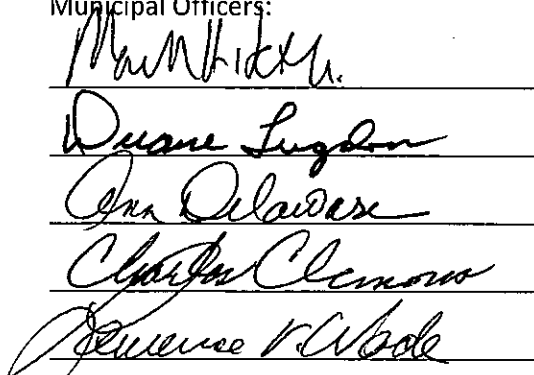 Municipal Officers:
Duane Lugdon
Ann Delaware
Charles Clemons
V. Wade